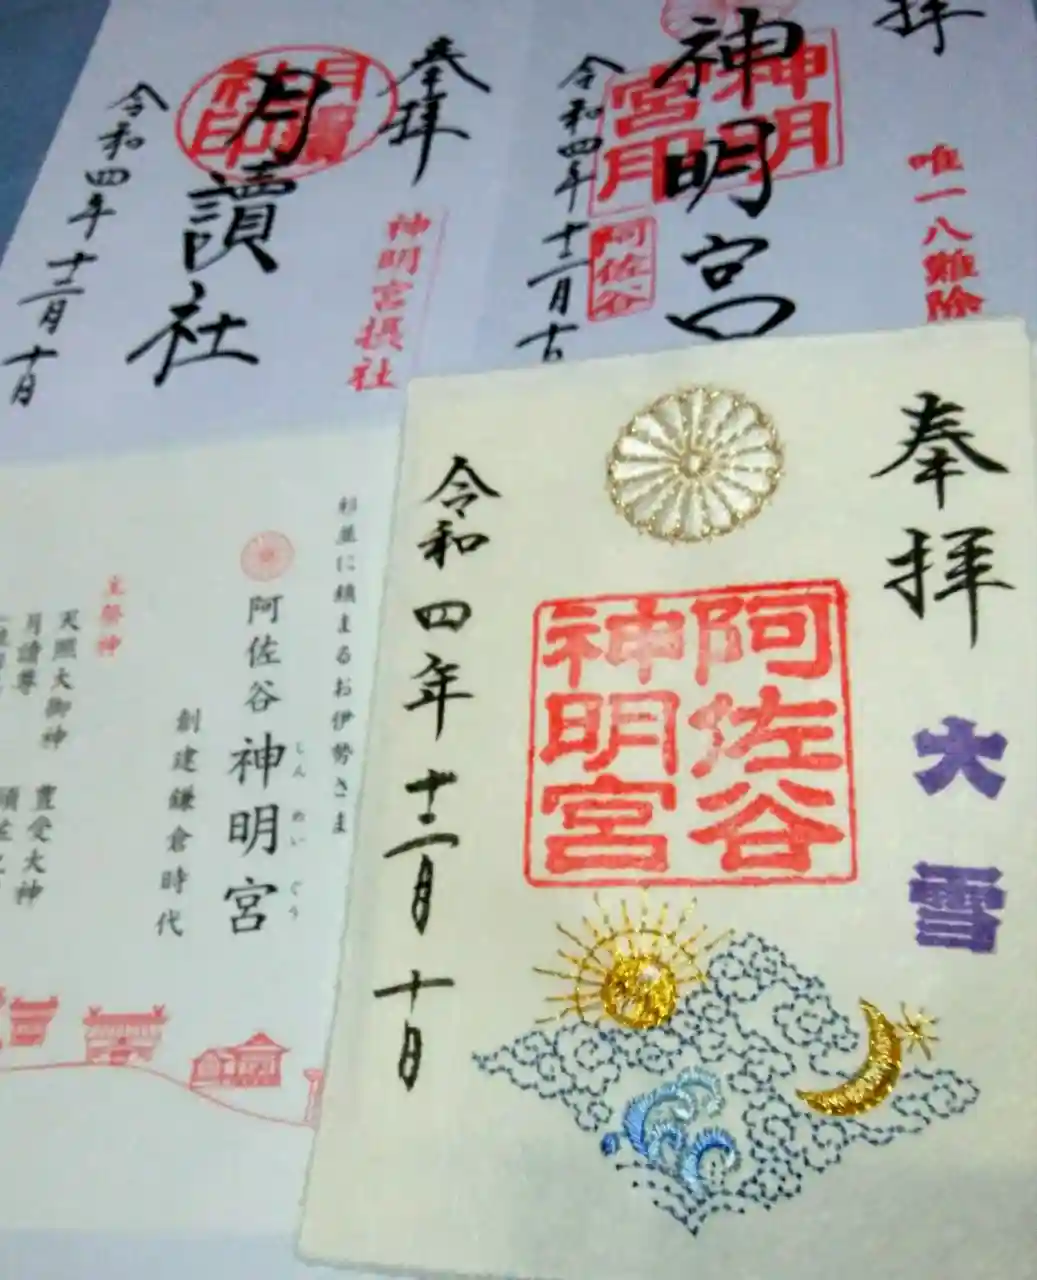 奉拝
月讀社
令和四年十二月十日
神明宮摂社
拝
神明宮
令和四年十二月
唯一八難除
神明
宮
阿佐谷
奉拝
大雪
阿佐谷
神明宮
令和四年十二月十日
杉並に鎮まるお伊勢さま
阿佐谷
神明宮
しんめいぐう
創建鎌倉時代
主祭神
天照大御神 豊受大神
月読尊